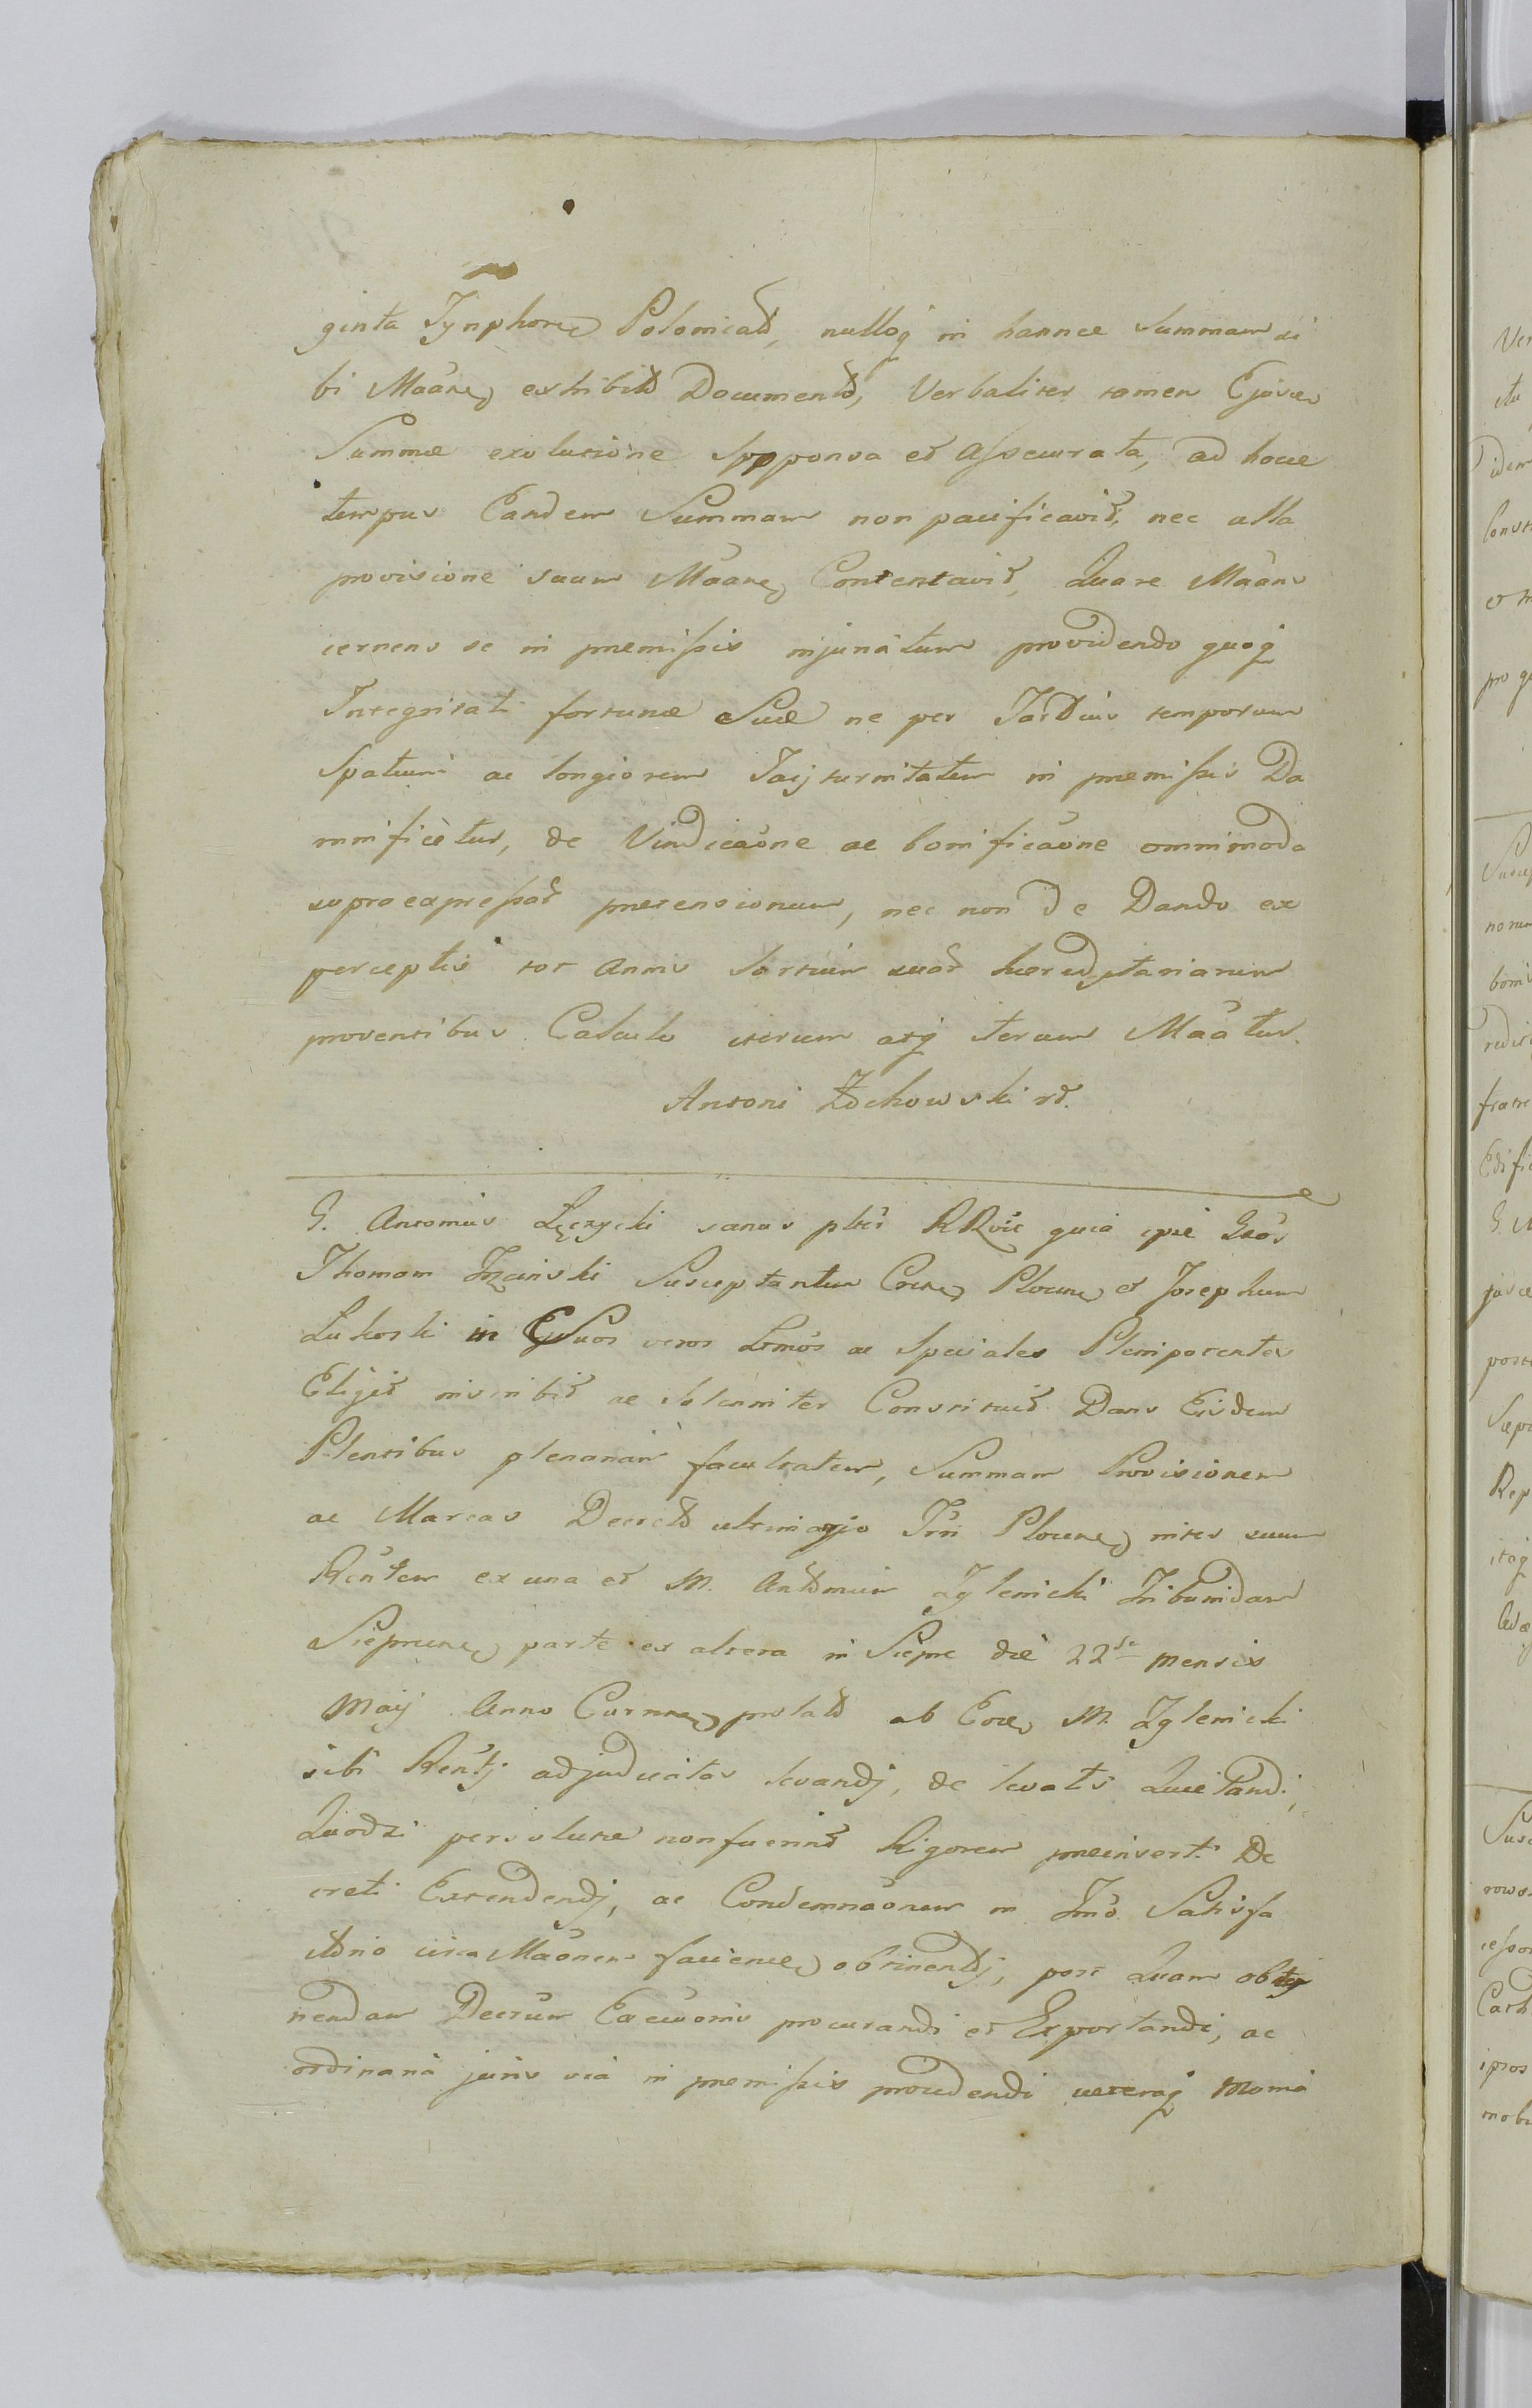 ginta Tynphorum Polonical, nulloq in hance Summam si
bi Maane exhibito Documento, Verbaliter tamen Ejusce
Summæ exolutione Spponsa et Assecurata, ad hocce
tempus Eandem Summam non pacificavit, nec ulla
provisione suum Maane Contentavit, Quare Maans
cernens se in premissis injuriatum providendo quoq
Integritati fortunæ Suæ ne per Tardius temporum
Spatium ac longiorem Tacijturnitatem in premissis Da
mnificetur, de Vindicaone ac bonificaone omnimoda
supraexpressar pretensionum, nec non de Dando ex
perceptis tot Annis Sortium suar hæredytariarum
proventibus Calculo iterum atq iterum Maatur.
Antoni Żochowski
G. Antonius Łączycki sanus quia ipse Gsos
Thomam Susceptantem Plocne et Josephum
Lukoski in Suos veros Ltmos ac Speciales Plenipotentes
Elijit inscribit ac Solenniter Constituit Dans Eisdem
Plentibus plenariam facultatem, Summam Provisionem
ac Marcas Decreto ultimario Trri Plocne inter suum
Rentem ex una et M. Antonium Zglenicki Tribunidam
Sieprcne parte ex altera in Siepre die 22da mensis
Maij Anno Currne prolato ab Eoce M. Zglenicki
sibi Rentj adjudicatas levandj, de levatis Quietandi,
Quodsi persolutæ nonfuerint Rigorem preinserti De
creti Extendendj, ac Condemnaonem in Tmo Satisfa
ctorio circa Maonem faciene obtinendj, post Quam obty
nendam Decrum Execuonis procurandi et Exportandi, ac
ordinaria juris via in premissis procedendi cæteraq Momia